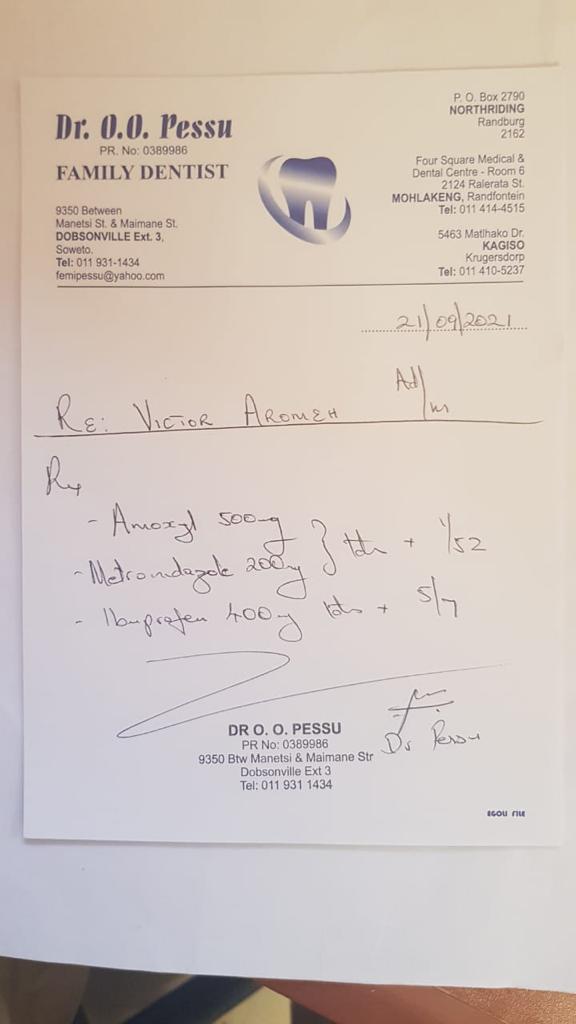 Dr. O.O. Pessu
PR. No: 0389986
FAMILY DENTIST
9350 Between
Manetsi St. & Maimane St.
DOBSONVILLE Ext. 3,
Soweto.
Tel: 011 931-1434
femipessu@yahoo.com
P. O. Box 2790
NORTHRIDING
Randburg
2162
Four Square Medical &
Dental Centre - Room 6
2124 Ralerata St.
MOHLAKENG, Randfontein
Tel: 011 414-4515
5463 Matlhako Dr.
KAGISO
Krugersdorp
Tel: 011 410-5237
21/09/2021
Ad/m
RE: VICTOR AROMEH
Rx
- Amoxyl 500mg
- Metronidazole 200mg } tds + 1/52
- Ibuprofen 400mg tds + 5/7
Dr Pessu
DR O. O. PESSU
PR No: 0389986
9350 Btw Manetsi & Maimane Str
Dobsonville Ext 3
Tel: 011 931 1434
EGOLI FILE